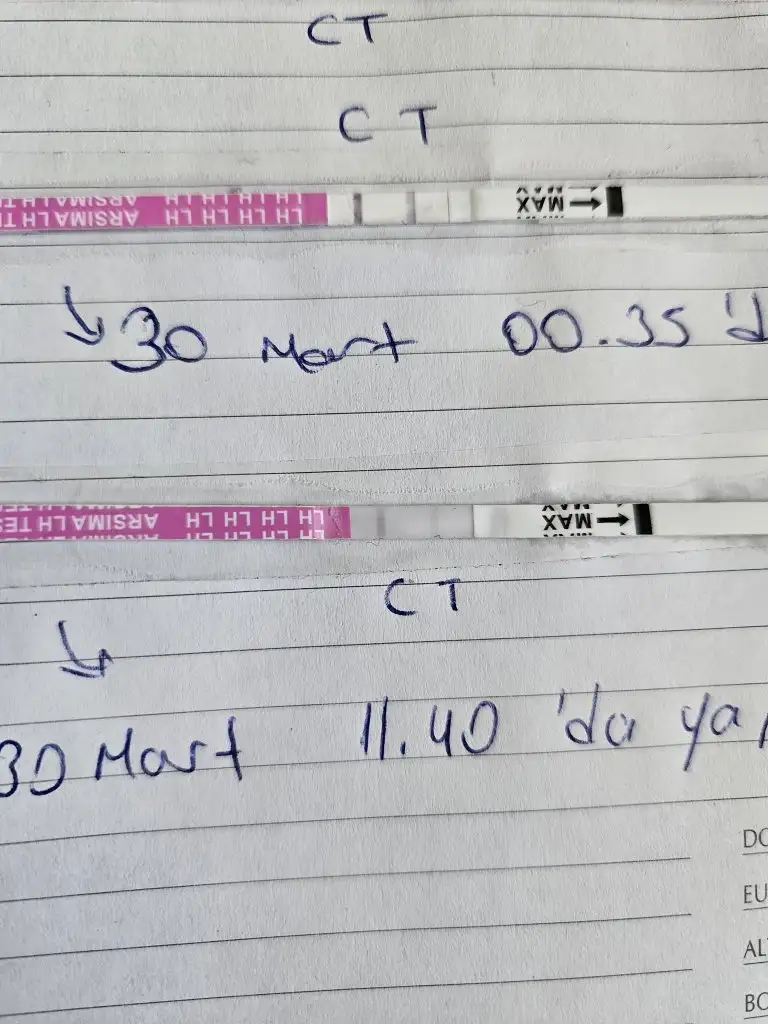 CT
CT
ARSIMA LH TE LH LH LH LH
MAX
30 Mart 00.35 'd
ARSIMA LH TES LH LH LH LH
MAX
CT
30 Mart 11.40 'da ya
DO
EU
AL
BO